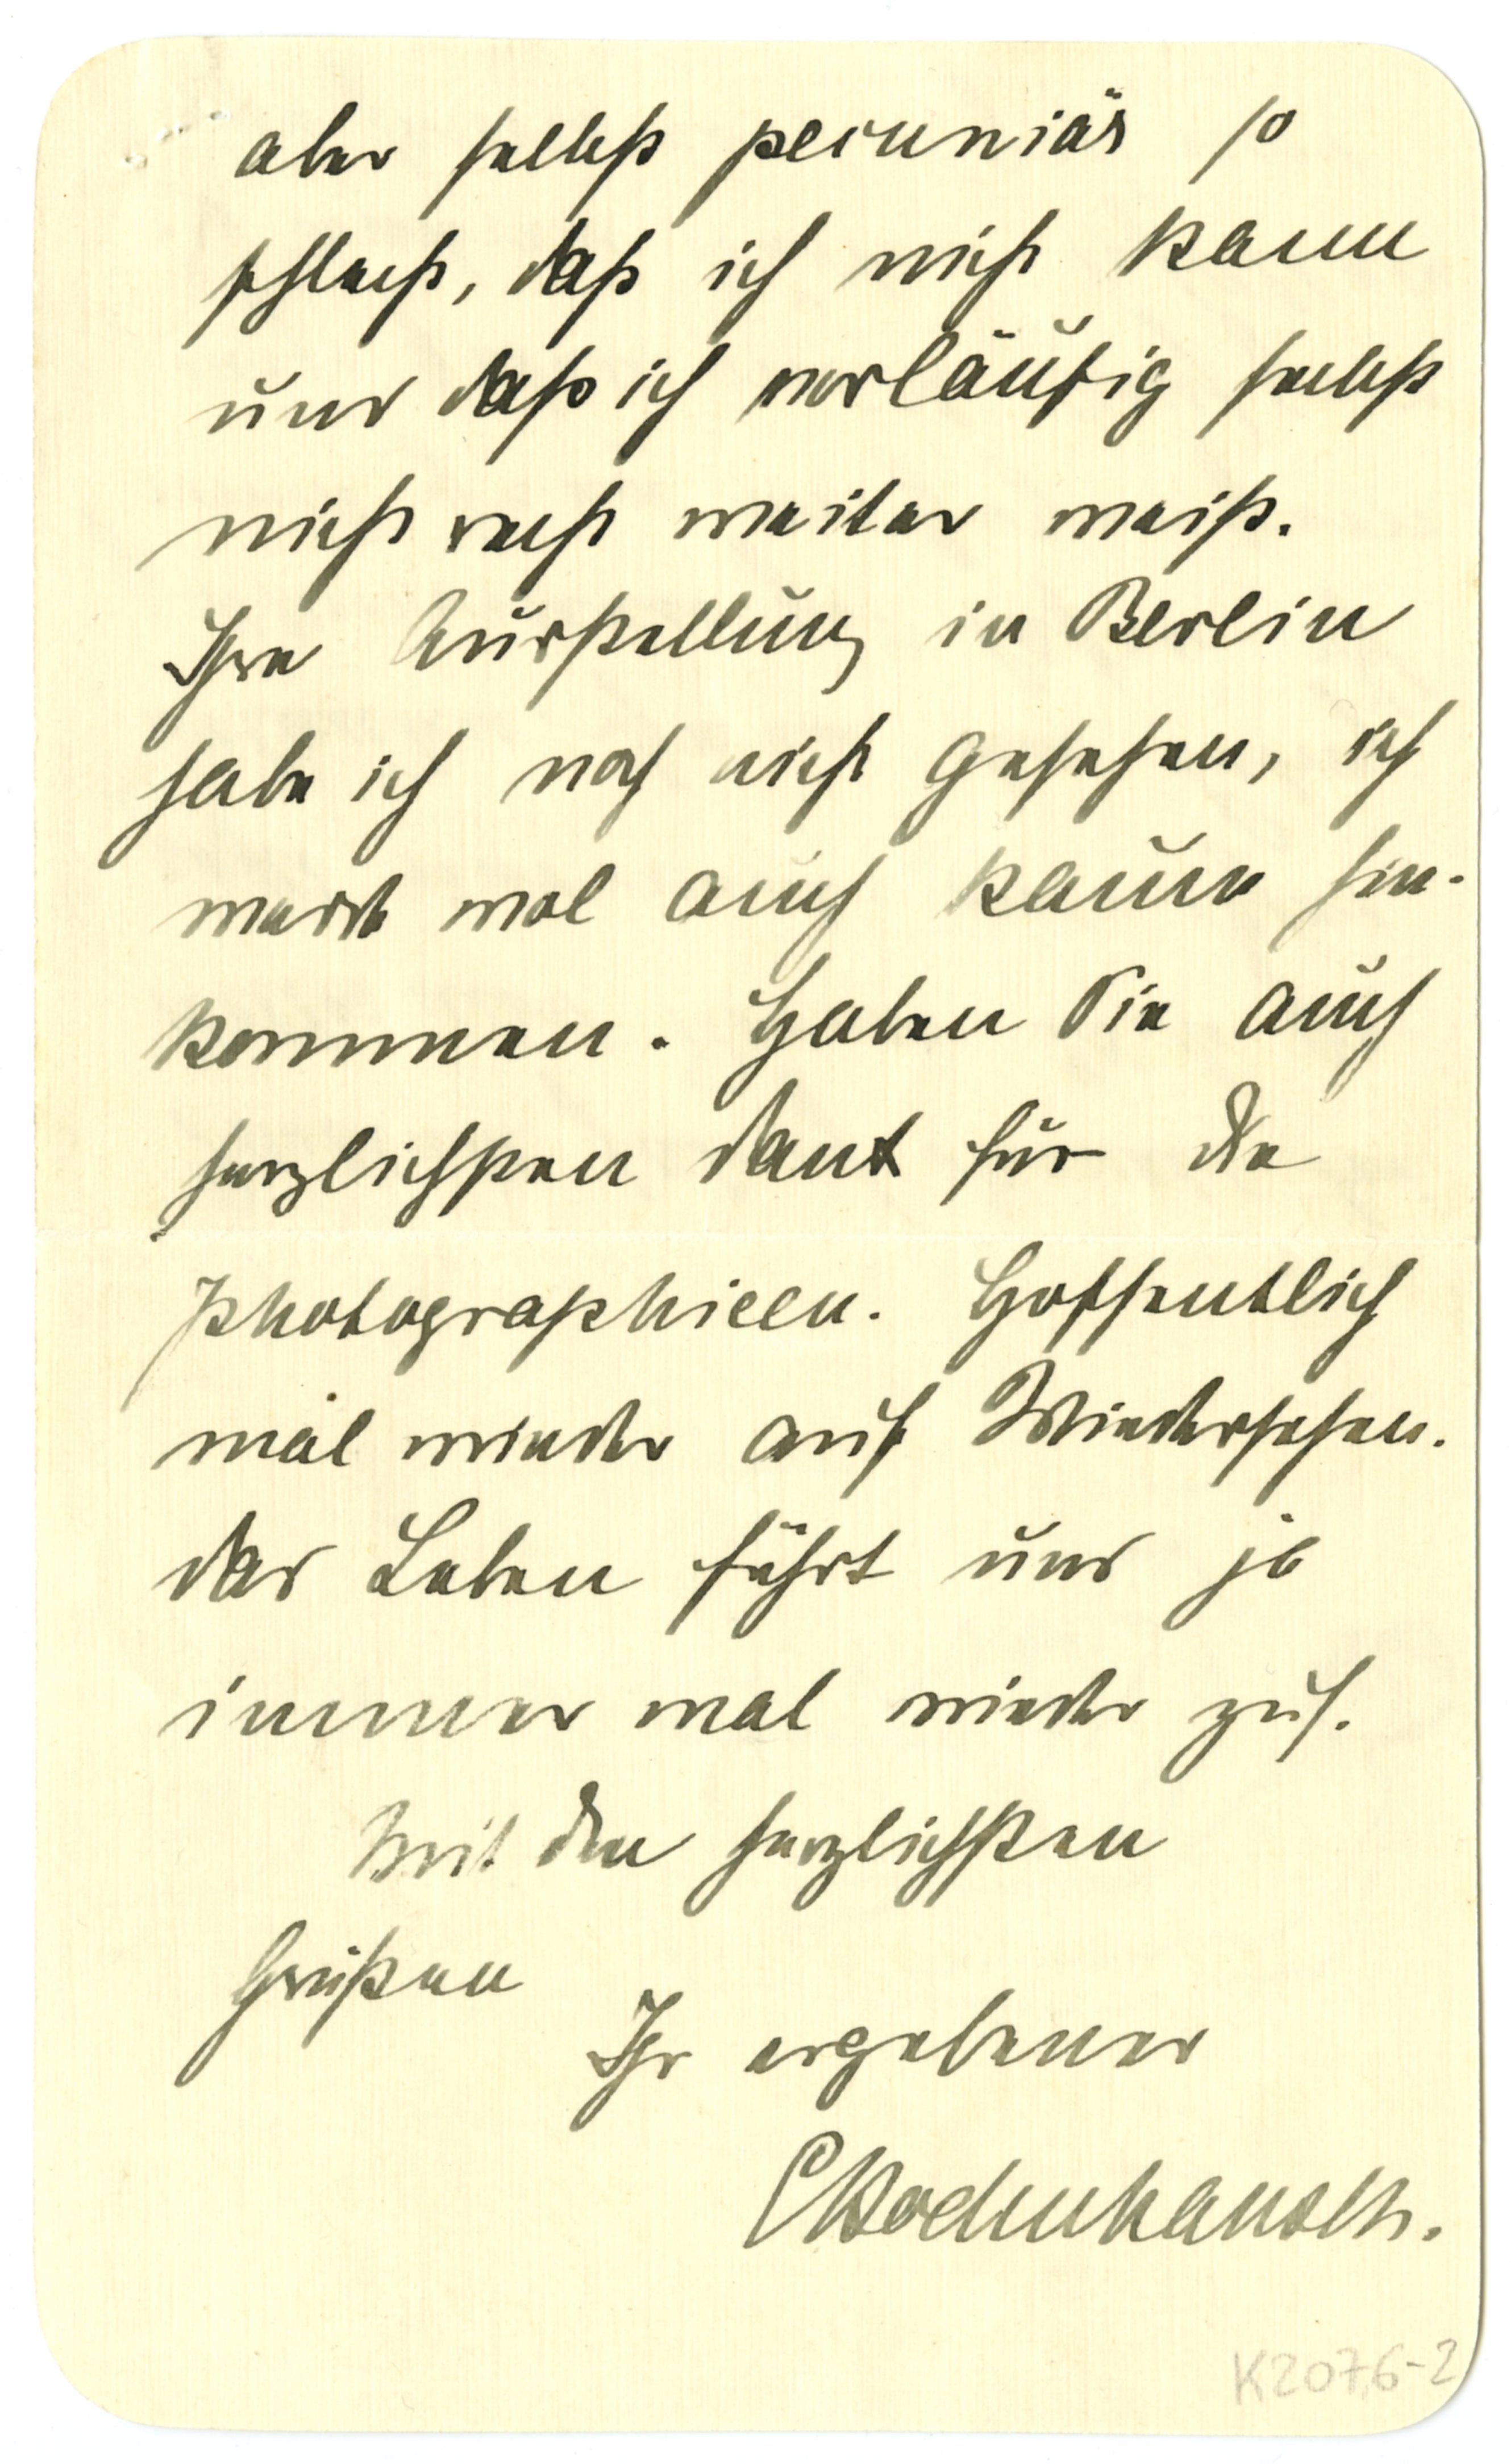 aber selbst pecuniär so
schlecht, daß ich nicht kann
und daß ich vorläufig selbst
nicht recht weiter weiß.
Ihre Ausstellung in Berlin
habe ich noch nicht gesehen, ich
werde mal auch kaum hin-
kommen. Haben Sie auch
herzlichsten Dank für die
Photographieen. Hoffentlich
mal wieder auf Wiedersehen.
das Leben führt uns ja
immer mal wieder zus.
Mit den herzlichsten
Grüßen
Ihr ergebener
EBodenhausen.
K207,6-2